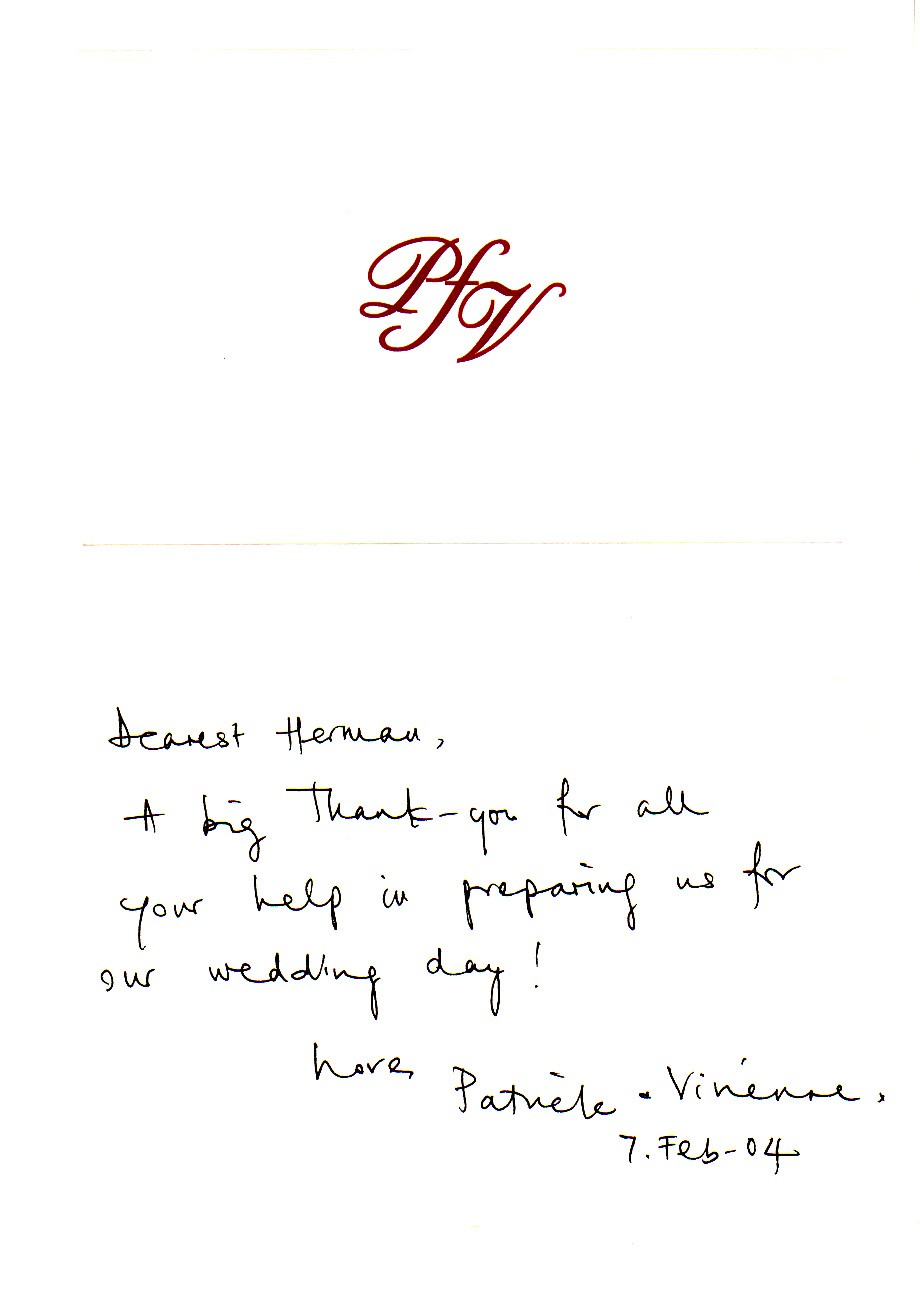 PfV
Dearest Herman,
A big Thank-you for all
your help in preparing us for
our wedding day!
Love, Patrick & Vivienne.
7. Feb-04